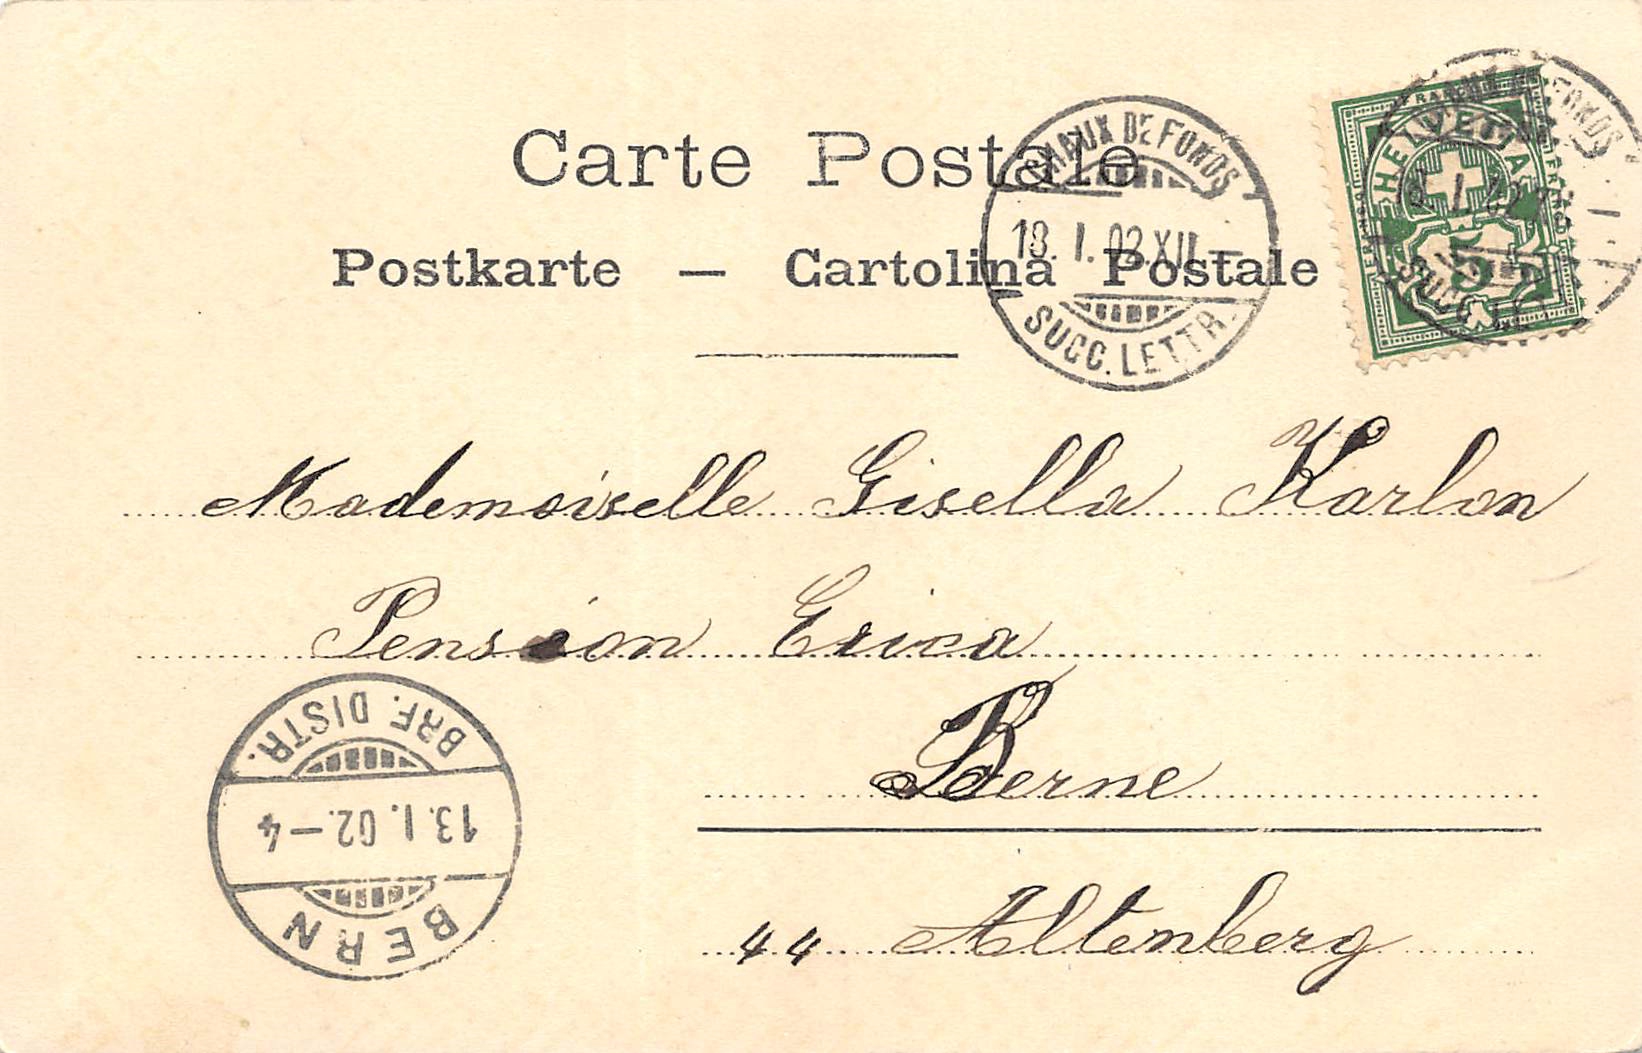 Carte Postale
Postkarte — Cartolina Postale
CHAUX DE FONDS
13. I. 02. XII —
SUCC. LETTR.
FRANCO
HELVETIA
5
Mademoiselle Gisella Karlon
Pension Erica
Berne
44 Altenberg
BERN
13. I. 02. — 4
BRF. DISTR.